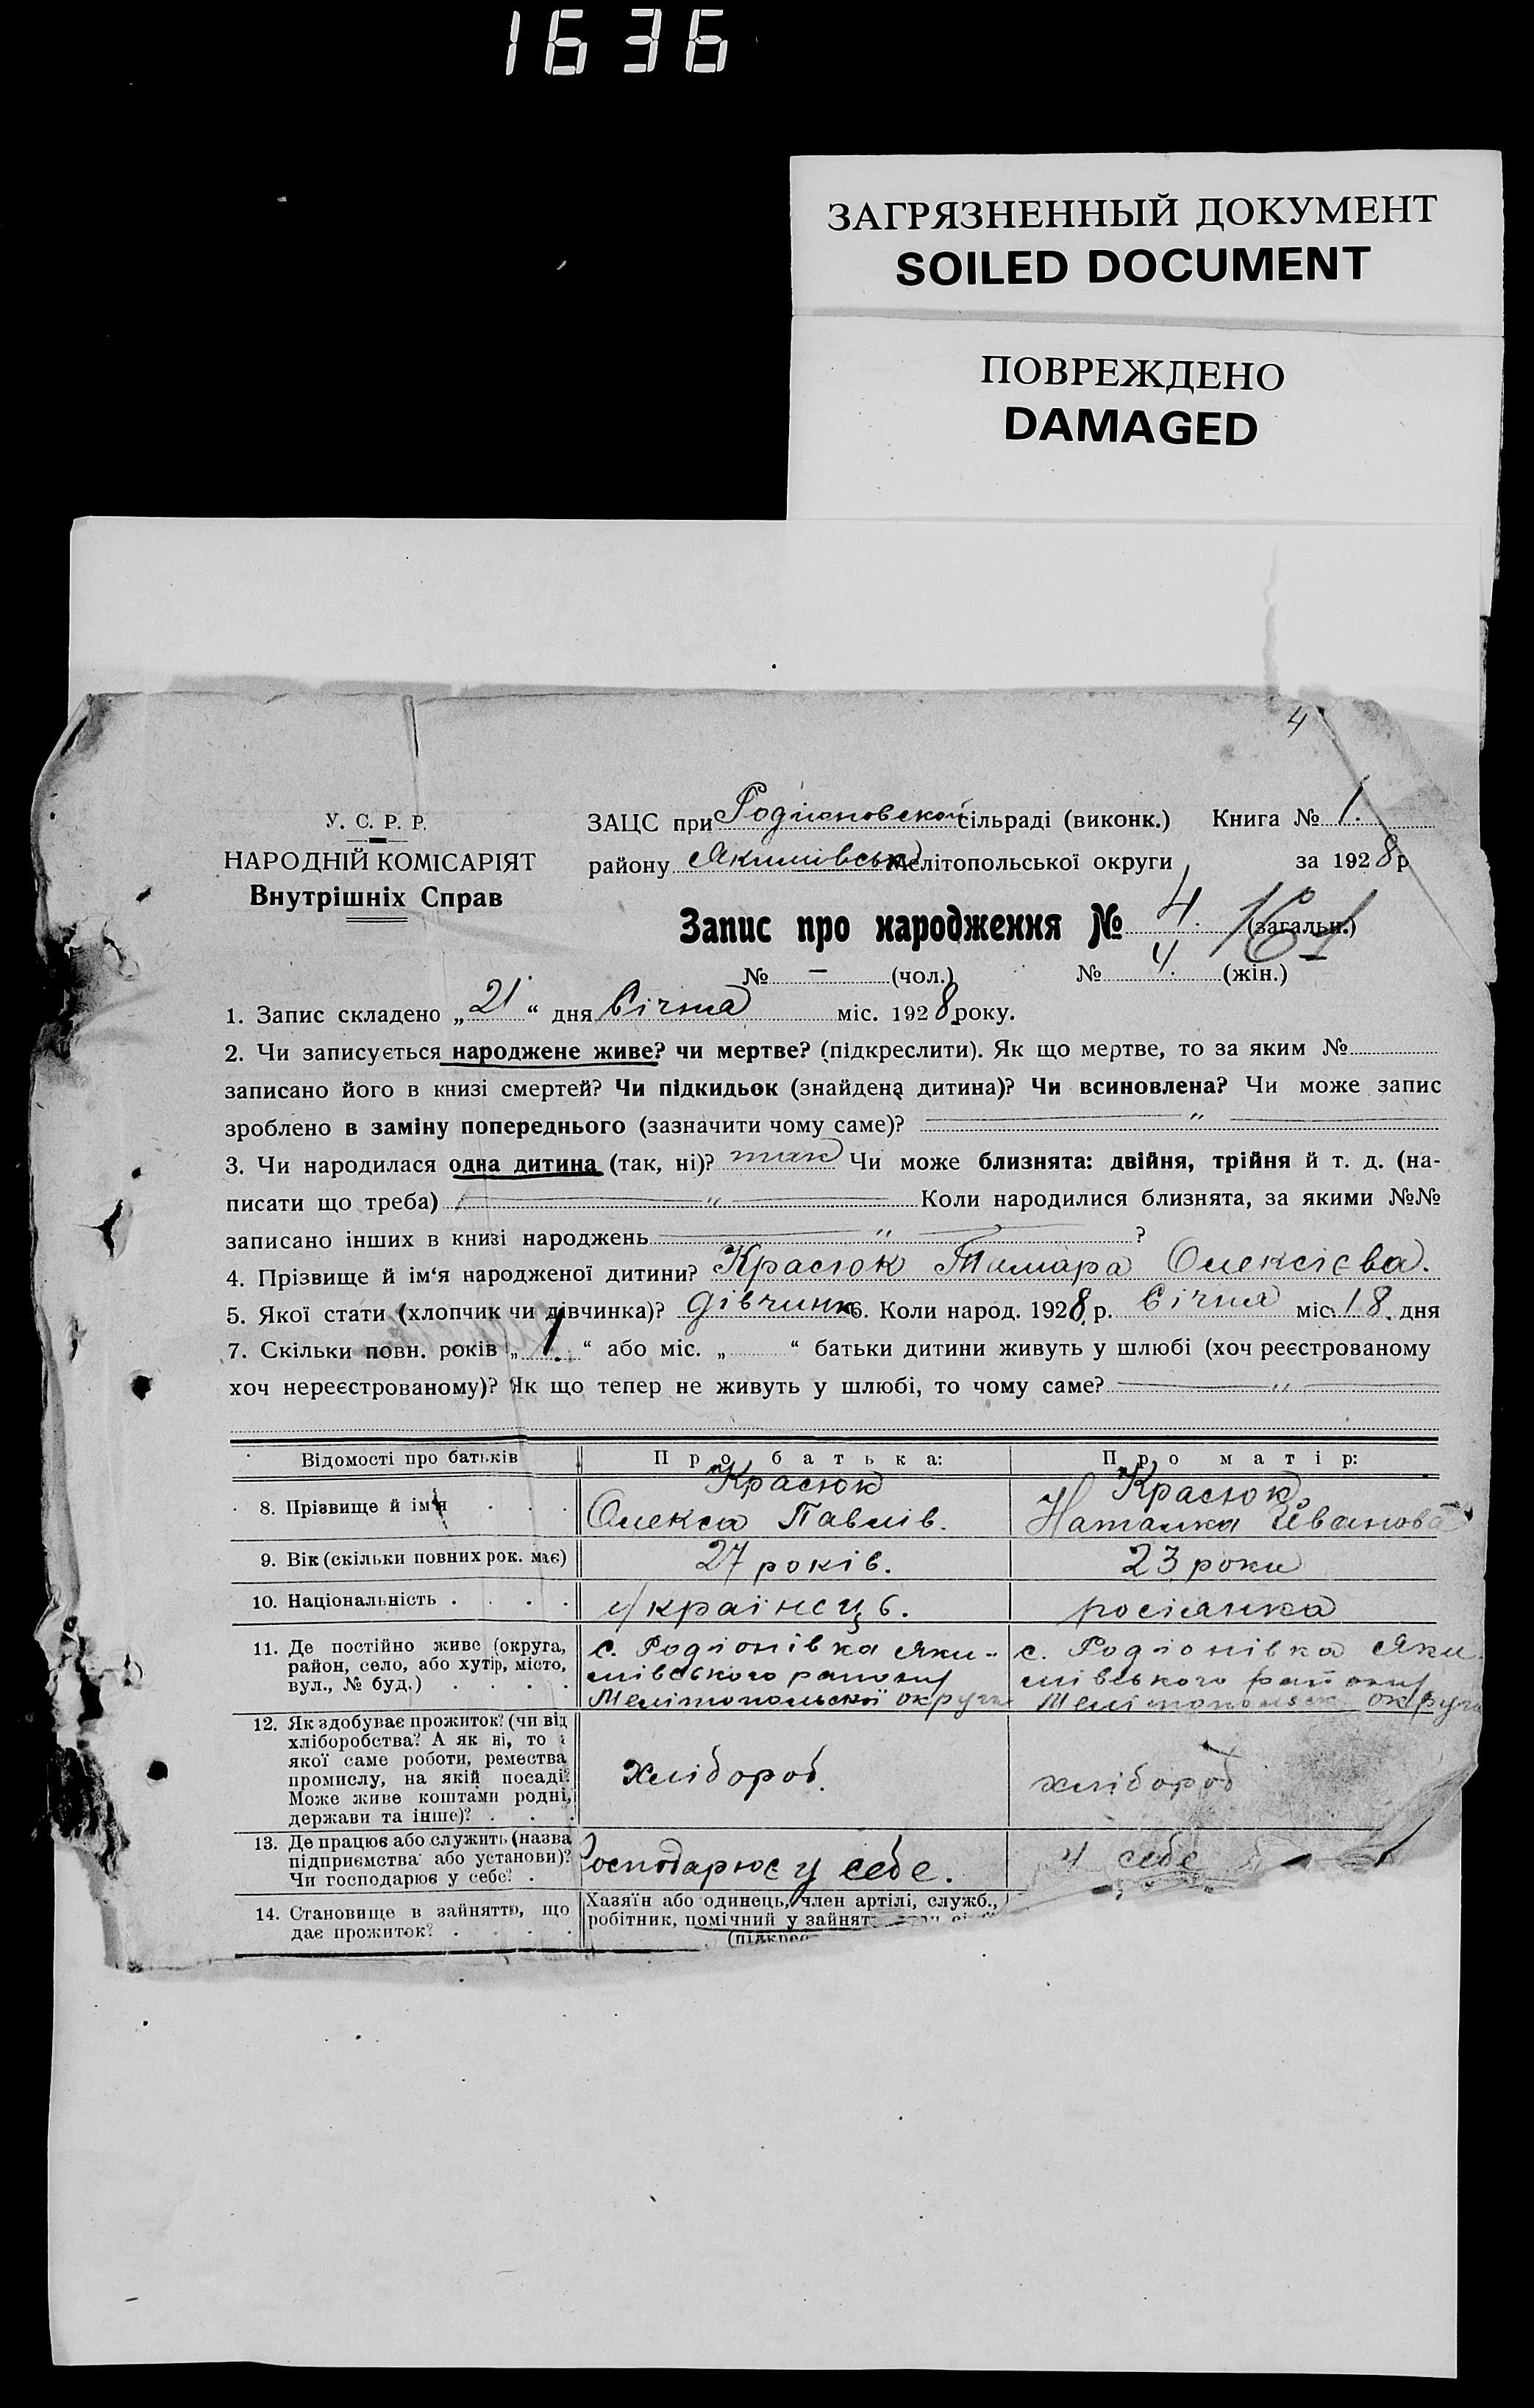 1636
ЗАГРЯЗНЕННЫЙ ДОКУМЕНТ
SOILED DOCUMENT
ПОВРЕЖДЕНО
DAMAGED
4
У. С. Р. Р.
НАРОДНІЙ КОМІСАРІЯТ
Внутрішніх Справ
ЗАЦС при Родионовской сільраді (виконк.) Книга № 1.
району Якимівськ Мелітопольської округи за 1928 р
Запис про народження № 4. 161 (загальн.)
№ – (чол.) № 4. (жін.)
1. Запис складено „21“ дня Січня міс. 1928 року.
2. Чи записується народжене живе? чи мертве? (підкреслити). Як що мертве, то за яким №
записано його в книзі смертей? Чи підкидьок (знайдена дитина)? Чи всиновлена? Чи може запис
зроблено в заміну попереднього (зазначити чому саме)? — „ —
3. Чи народилася одна дитина (так, ні)? так Чи може близнята: двійня, трійня й т. д. (на-
писати що треба) — „ — Коли народилися близнята, за якими №№
записано інших в книзі народжень — „ — ?
4. Прізвище й ім‘я народженої дитини? Красюк Тамара Олексієва.
5. Якої стати (хлопчик чи дівчинка)? дівчинк 6. Коли народ. 1928 р. Січня міс. 18. дня
7. Скільки повн. років „1.“ або міс. „ “ батьки дитини живуть у шлюбі (хоч реєстрованому
хоч нереєстрованому)? Як що тепер не живуть у шлюбі, то чому саме? — „ —
Відомості про батьків Про батька: Про матір:
8. Прізвище й ім‘я . . . Красюк Олекса Павлів. Красюк Наталка Іванова
9. Вік (скільки повних рок. має) 27 років. 23 роки
10. Національність . . . . українець. росіянка
11. Де постійно живе (округа,
район, село, або хутір, місто,
вул., № буд.) . . . .
с. Родіонівка Яки-
мівського району
Мелітопольської округи
с. Родіонівка Яки-
мівського району
Мелітопольськ округи
12. Як здобуває прожиток? (чи від
хліборобства? А як ні, то з
якої саме роботи, ремества
промислу, на якій посаді?
Може живе коштами родні,
держави та інше)? . . .
Хлібороб.
хлібороб
13. Де працює або служить (назва
підприємства або установи)?
Чи господарює у себе? .
Господарює у себе.
у себе
14. Становище в зайняттю, що
дає прожиток? . . . .
Хазяїн або одинець, член артілі, служб.,
робітник, помічний у зайнят
(підкрес